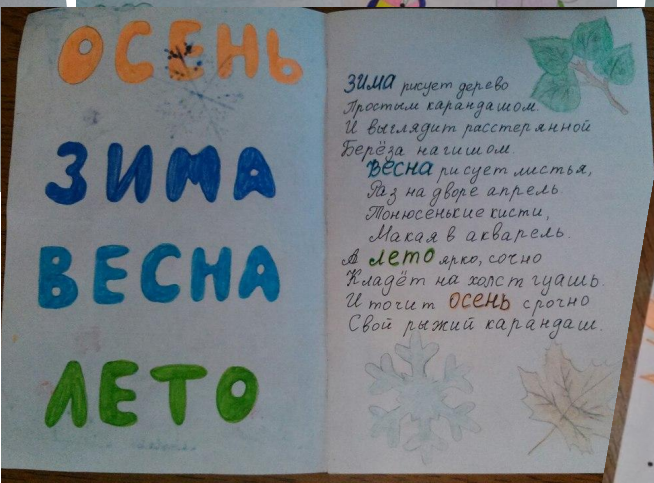 ОСЕНЬ
ЗИМА
ВЕСНА
ЛЕТО
Зима рисует дерево
Простым карандашом.
И выглядит расстерянной
Берёза нагишом.
Весна рисует листья,
Раз на дворе апрель.
Тонюсенькие кисти,
Макая в акварель.
А лето ярко, сочно
Кладёт на холст гуашь.
И точит осень срочно
Свой рыжий карандаш.